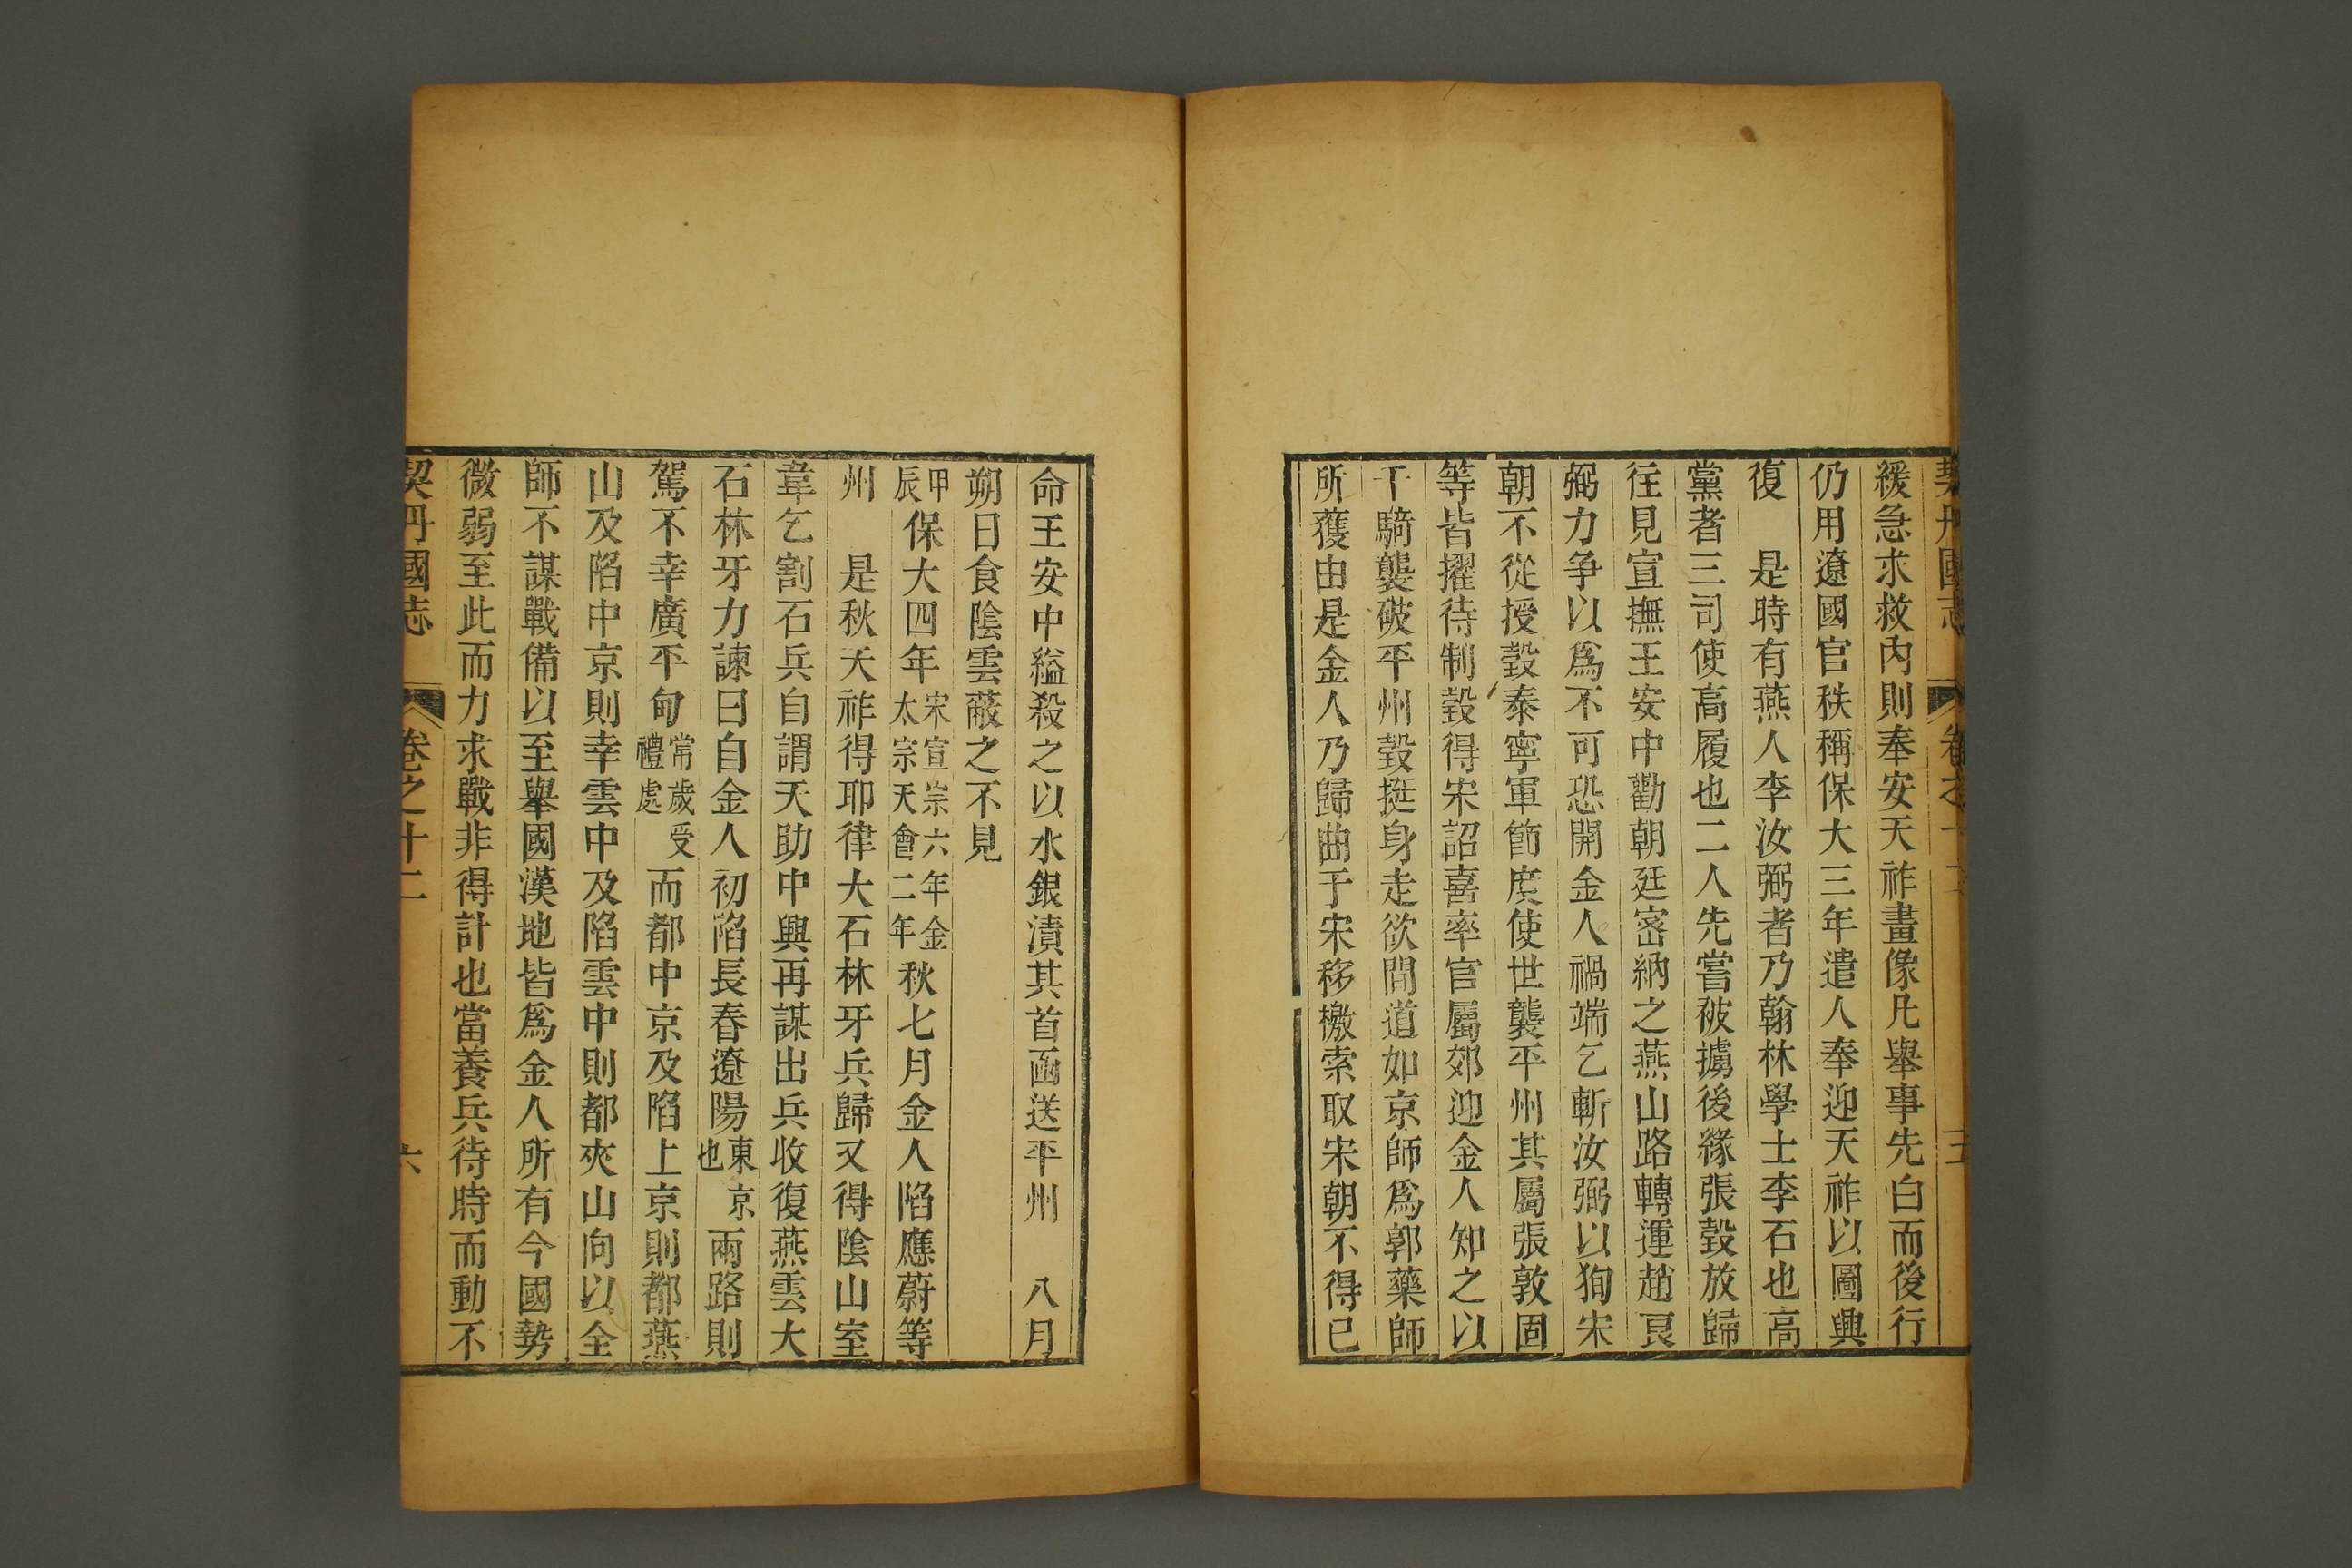 契丹國志 卷之十二 五
緩急求救內則奉安天祚畫像凡舉事先白而後行
仍用遼國官秩稱保大三年遣人奉迎天祚以圖興
復　是時有燕人李汝弼者乃翰林學士李石也高
黨者三司使高履也二人先嘗被擄後緣張瑴放歸
往見宣撫王安中勸朝廷密納之燕山路轉運趙良
弼力爭以爲不可恐開金人禍端乞斬汝弼以狥宋
朝不從授瑴泰寧軍節度使世襲平州其屬張敦固
等皆擢待制瑴得宋詔喜率官屬郊迎金人知之以
千騎襲破平州瑴挺身走欲間道如京師爲郭藥師
所獲由是金人乃歸曲于宋移檄索取宋朝不得已
命王安中縊殺之以水銀漬其首函送平州　八月
朔日食陰雲蔽之不見
甲辰保大四年宋宣宗六年金太宗天會二年秋七月金人陷應蔚等
州　是秋天祚得耶律大石林牙兵歸又得陰山室
韋乞割石兵自謂天助中興再謀出兵收復燕雲大
石林牙力諫曰自金人初陷長春遼陽東京也兩路則
駕不幸廣平甸常歲受禮處而都中京及陷上京則都燕
山及陷中京則幸雲中及陷雲中則都夾山向以全
師不謀戰備以至舉國漢地皆爲金人所有今國勢
微弱至此而力求戰非得計也當養兵待時而動不
契丹國志 卷之十二 六